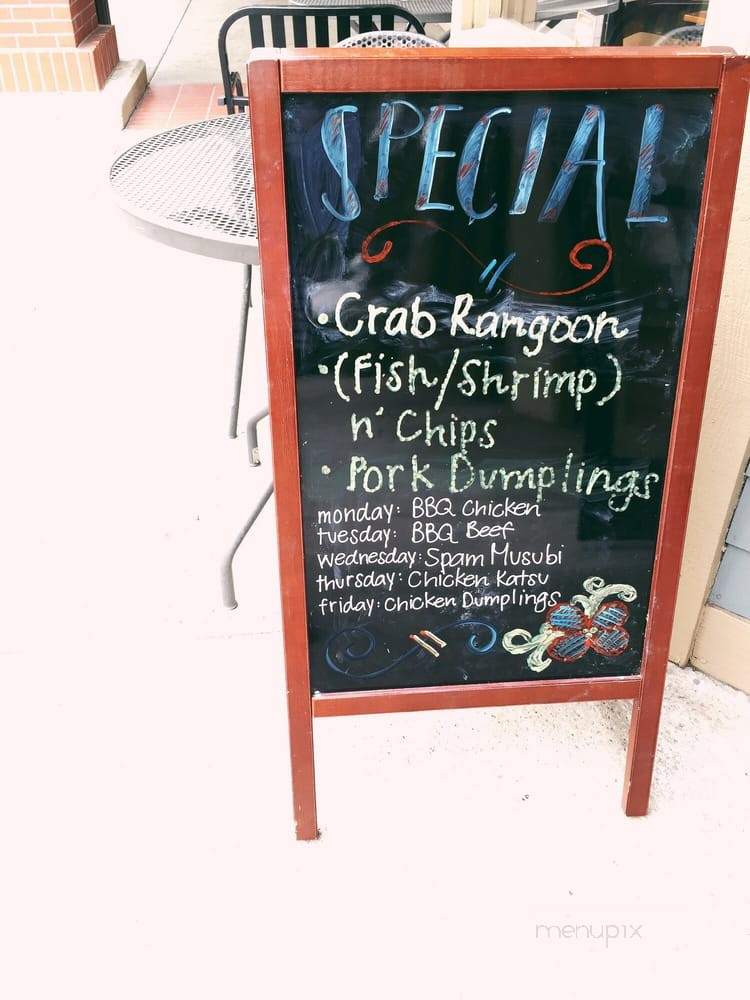 SPECIAL
• Crab Rangoon
• (Fish/Shrimp)
n' Chips
• Pork Dumplings
monday: BBQ Chicken
tuesday: BBQ Beef
wednesday: Spam Musubi
thursday: Chicken Katsu
friday: Chicken Dumplings
menupix